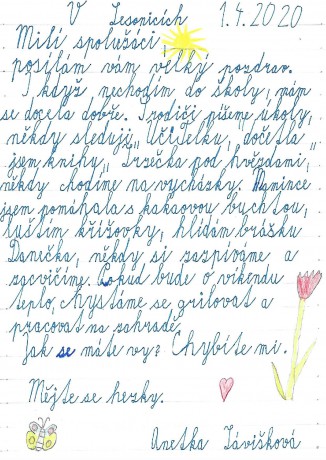 V Lesonicích 1.4.2020
Milí spolužáci,
posílám vám velký pozdrav.
I když nechodím do školy, mám
se docela dobře. S rodiči píšeme úkoly,
někdy sleduji „Učitelku", dočetla
jsem knihu „Trzečka pod hvězdami,
někdy chodíme na vycházky. Mamince
jsem pomáhala s kakaovou buchtou,
luštím křížovky, hlídám brášku
Danečka, někdy si zazpíváme a
zacvičíme. Pokud bude o víkendu
teplo, chystáme se grilovat a
pracovat na zahradě.
Jak se máte vy? Chybíte mi.
Mějte se hezky.
Anetka Závišková